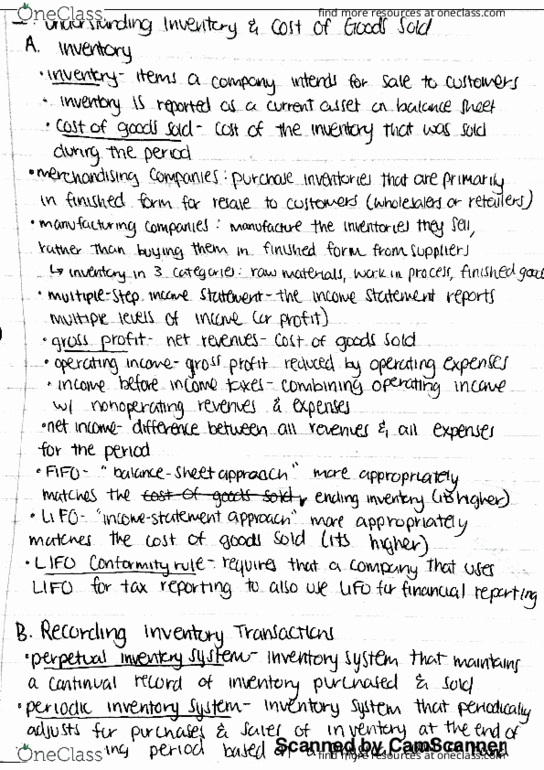 OneClass
find more resources at oneclass.com
I. Understanding Inventory & Cost of Goods Sold
A. Inventory
• inventory- items a company intends for sale to customers
• inventory is reported as a current asset on balance sheet
• cost of goods sold - cost of the inventory that was sold
during the period
• merchandising companies: purchase inventories that are primarily
in finished form for resale to customers (wholesalers or retailers)
• manufacturing companies: manufacture the inventories they sell,
rather than buying them in finished form from suppliers
↳ inventory in 3 categories: raw materials, work in process, finished goods
• multiple-step income statement - the income statement reports
multiple levels of income (or profit)
• gross profit- net revenues - cost of goods sold
• operating income- gross profit reduced by operating expenses
• income before income taxes - combining operating income
w/ nonoperating revenues & expenses
• net income- difference between all revenues & all expenses
for the period
• FIFO- "balance-sheet approach" more appropriately
matches the cost of goods sold, ending inventory (its higher)
• LIFO- "income-statement approach" more appropriately
matches the cost of goods sold (its higher)
• LIFO Conformity rule - requires that a company that uses
LIFO for tax reporting to also use LIFO for financial reporting
B. Recording Inventory Transactions
• perpetual inventory system- inventory system that maintains
a continual record of inventory purchased & sold
• periodic inventory system- inventory system that periodically
adjusts for purchases & sales of inventory at the end of
ing period based on a
Scanned by CamScanner
OneClass
find more resources at oneclass.com